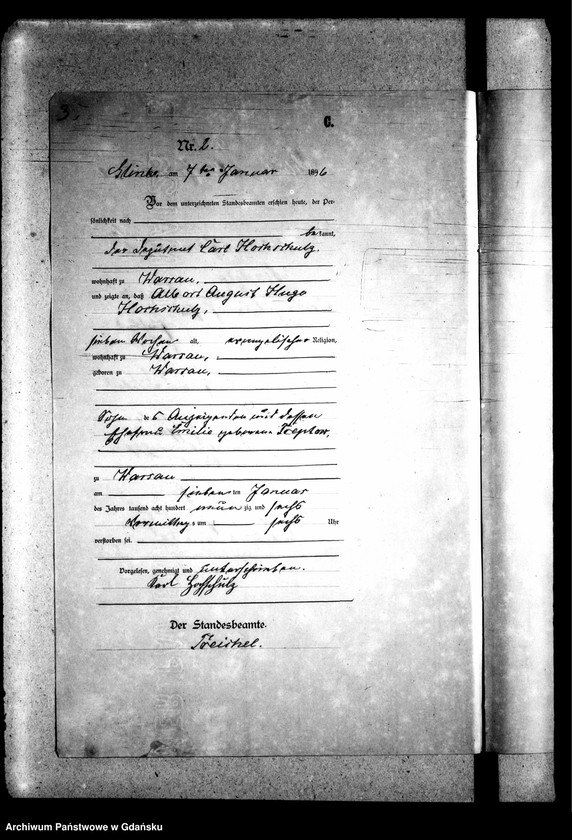 3.
C.
Nr. 2.
am 7ten Januar 1896
Vor dem unterzeichneten Standesbeamten erschien heute, der Per-
sönlichkeit nach
bekannt,
der Deputant Carl Hochschulz
wohnhaft zu Warsau,
und zeigte an, daß Albert August Hugo
Hochschulz,
sieben Wochen alt, evangelischer Religion,
wohnhaft zu Warsau,
geboren zu Warsau,
Sohn des Anzeigenden und dessen
Ehefrau Emilie geborene Treptow,
zu Warsau
am siebenten Januar
des Jahres tausend acht hundert neunzig und sechs
Vormittags um sechs Uhr
verstorben sei.
Vorgelesen, genehmigt und unterschrieben.
Karl Hochschulz
Der Standesbeamte.
Treichel.
Archiwum Państwowe w Gdańsku